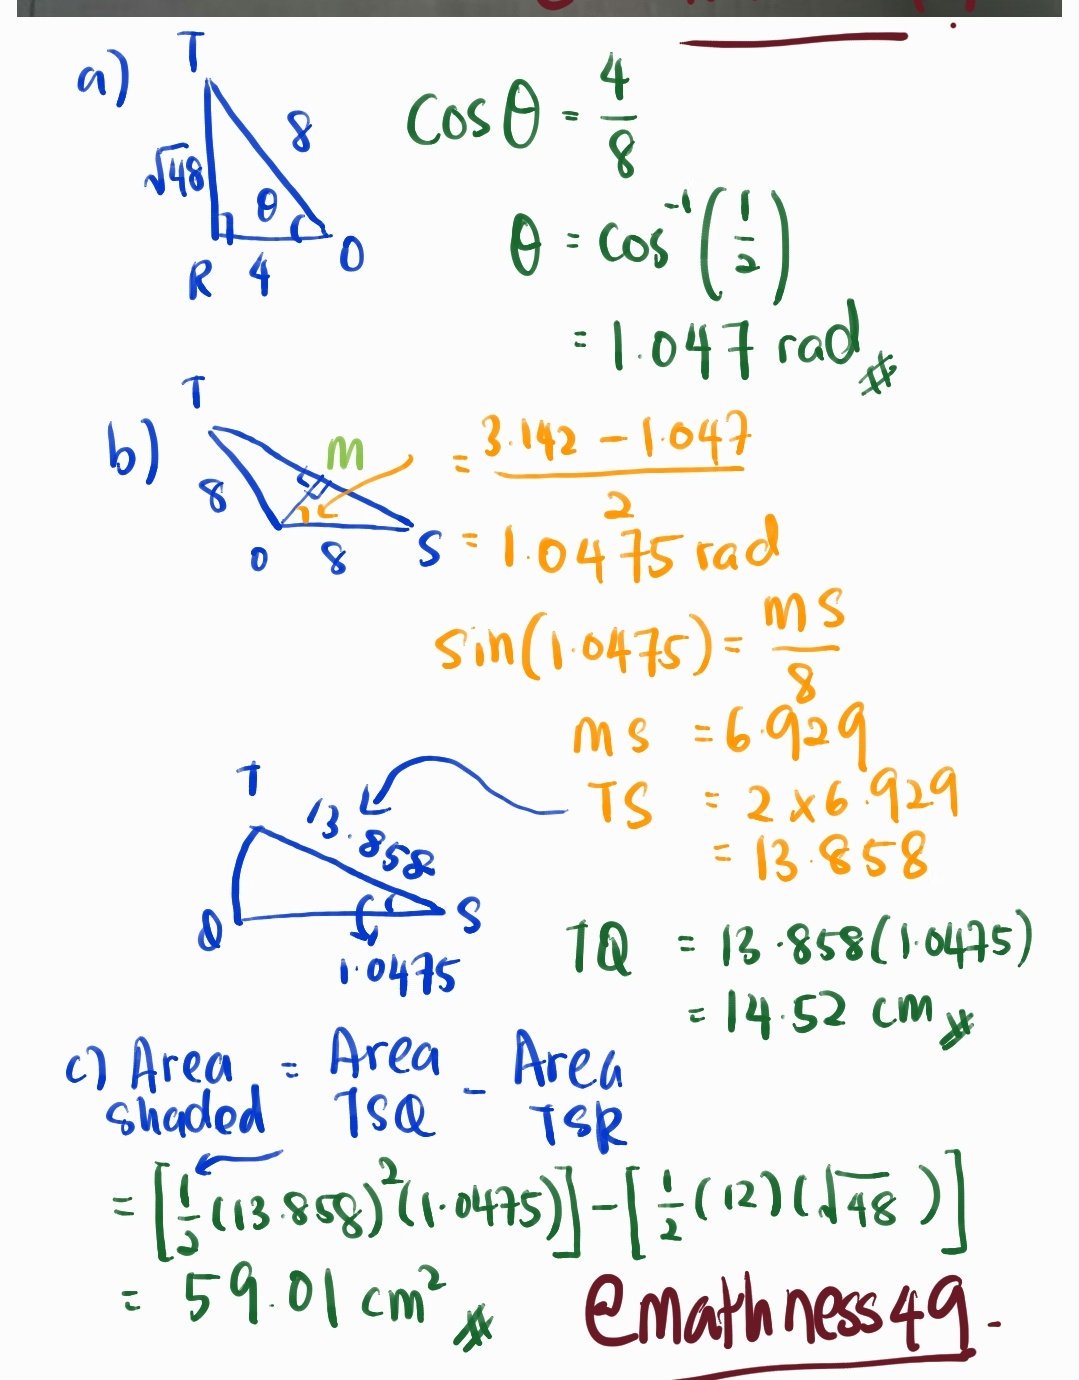 a)
T
√48
8
θ
R 4 O
Cos θ = 4/8
θ = cos⁻¹(1/2)
= 1.047 rad
b)
T
M
8
O 8 S
= (3.142 − 1.047)/2
= 1.0475 rad
sin(1.0475) = ms/8
ms = 6.929
TS = 2 × 6.929
= 13.858
T
13.858
Q S
1.0475
TQ = 13.858(1.0475)
= 14.52 cm
c) Area shaded = Area TSQ − Area TSR
= [1/2(13.858)²(1.0475)] − [1/2(12)(√48)]
= 59.01 cm²
@mathness49.